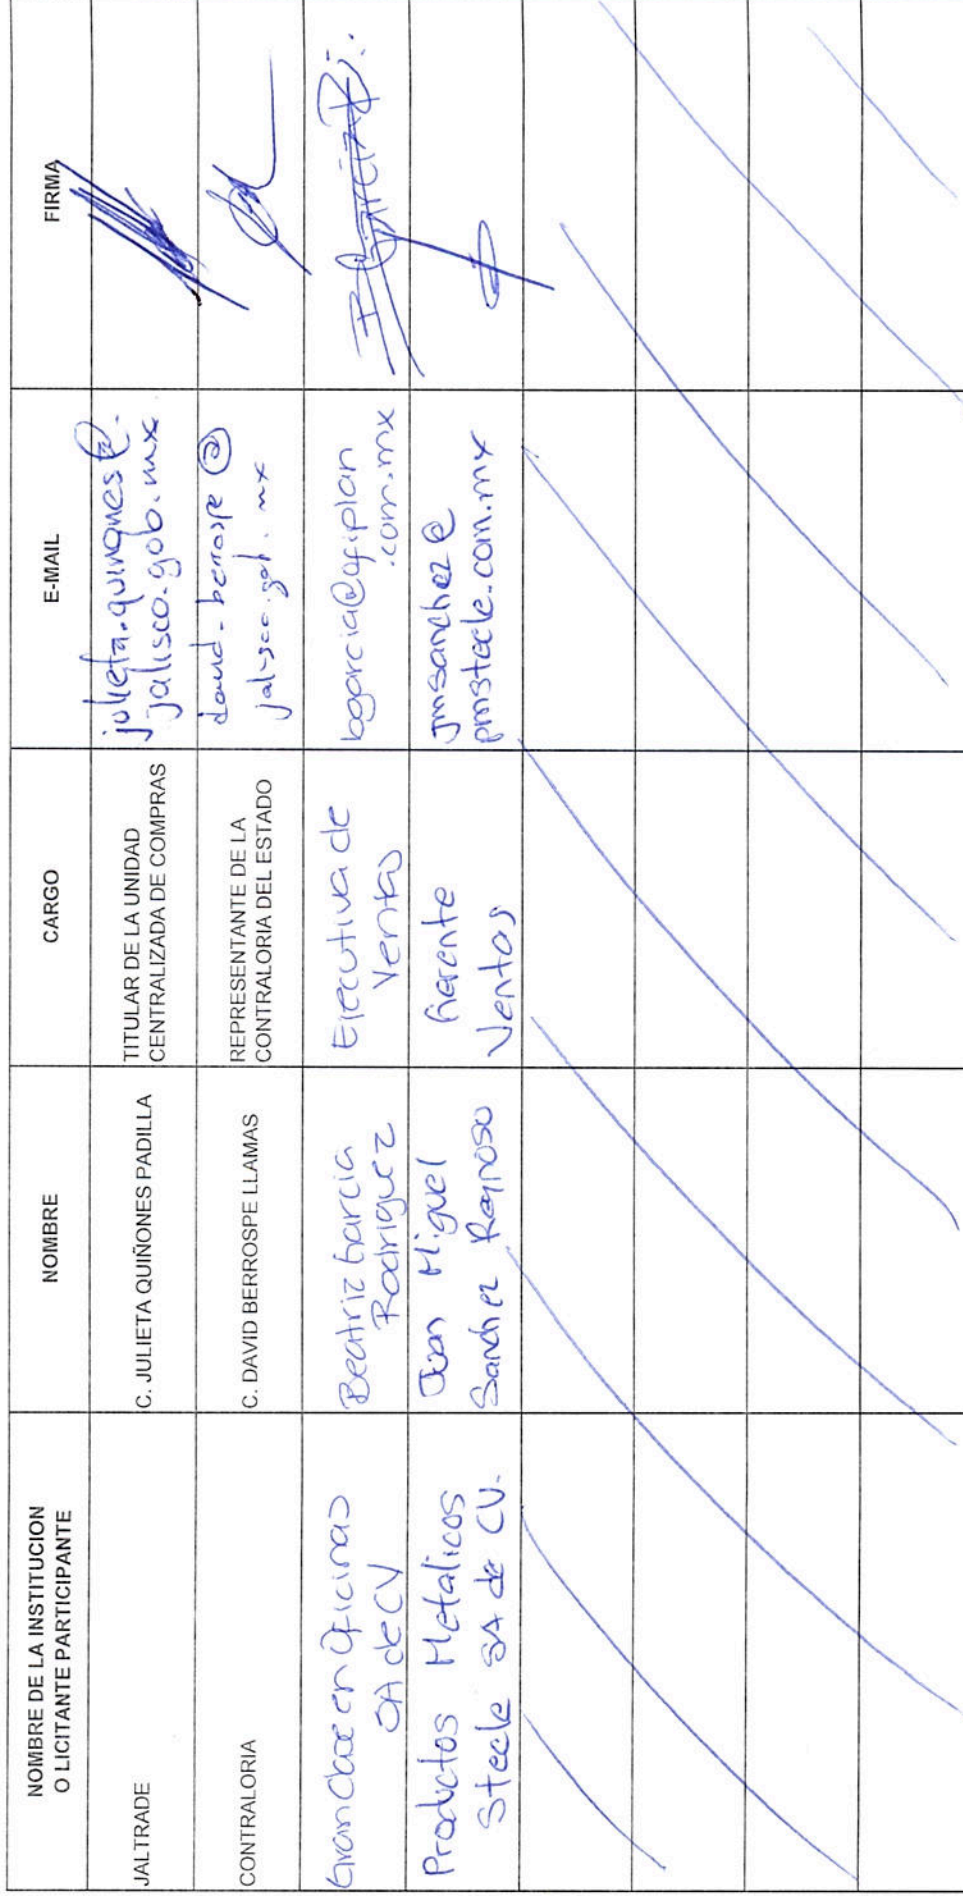 NOMBRE DE LA INSTITUCION
O LICITANTE PARTICIPANTE
NOMBRE
CARGO
E-MAIL
FIRMA
JALTRADE
C. JULIETA QUIÑONES PADILLA
TITULAR DE LA UNIDAD
CENTRALIZADA DE COMPRAS
julieta.quinones@
jalisco.gob.mx
CONTRALORIA
C. DAVID BERROSPE LLAMAS
REPRESENTANTE DE LA
CONTRALORIA DEL ESTADO
david.berrospe@
jalisco.gob.mx
Gran Clase en Oficinas
SA de CV
Beatriz Garcia
Rodriguez
Ejecutiva de
Ventas
bgarcia@ofiplan
.com.mx
Productos Metalicos
Steele SA de CV.
Juan Miguel
Sanchez Reynoso
Gerente
Ventas
jmsanchez@
pmsteele.com.mx